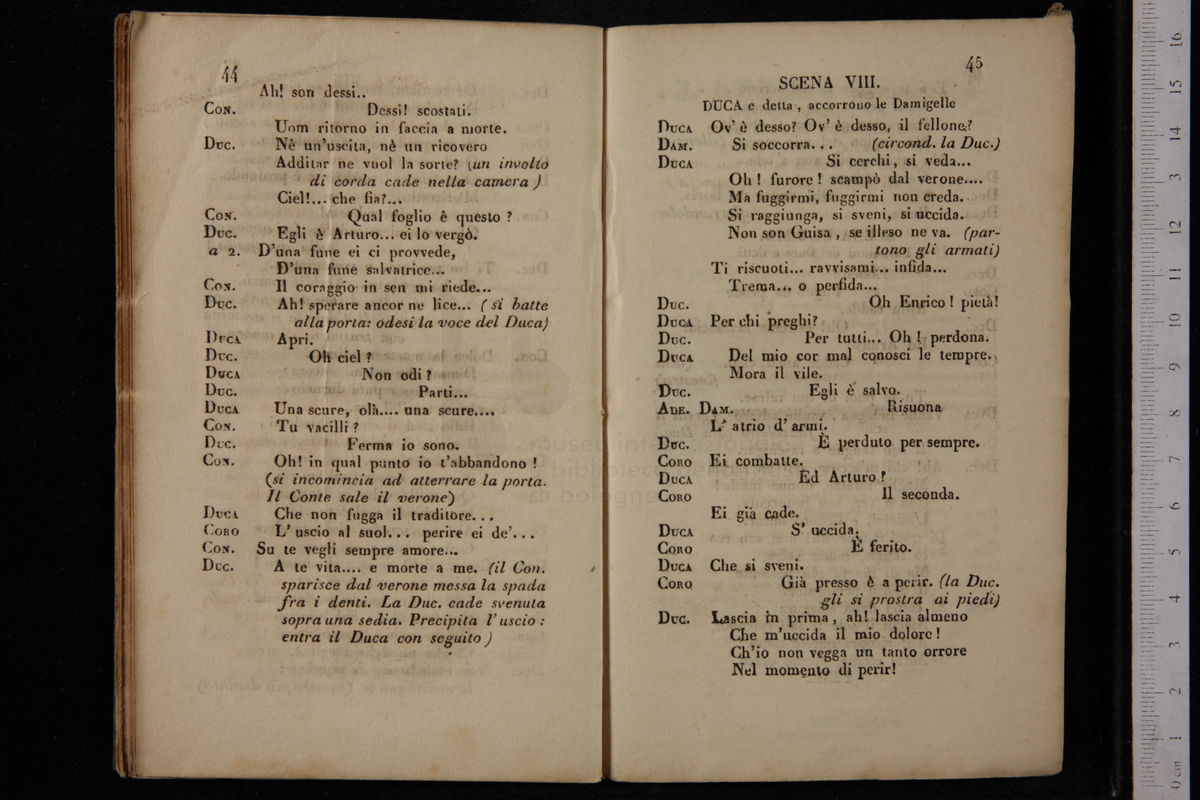 44
Ah! son dessi..
CON. Dessi! scostati.
Uom ritorno in faccia a morte.
DUC. Nè un'uscita, nè un ricovero
Additar ne vuol la sorte? (un involto
di corda cade nella camera )
Ciel!... che fia?...
CON. Qual foglio è questo ?
DUC. Egli è Arturo... ei lo vergò.
a 2. D'una fune ei ci provvede,
D'una fune salvatrice...
CON. Il coraggio in sen mi riede...
DUC. Ah! sperare ancor ne lice... ( si batte
alla porta: odesi la voce del Duca)
DUCA Apri.
DUC. Oh ciel ?
DUCA Non odi ?
DUC. Parti...
DUCA Una scure, olà.... una scure....
CON. Tu vacilli ?
DUC. Ferma io sono.
CON. Oh! in qual punto io t'abbandono !
(si incomincia ad atterrare la porta.
Il Conte sale il verone)
DUCA Che non fugga il traditore...
CORO L'uscio al suol... perire ei de'...
CON. Su te vegli sempre amore...
DUC. A te vita.... e morte a me. (il Con.
sparisce dal verone messa la spada
fra i denti. La Duc. cade svenuta
sopra una sedia. Precipita l'uscio :
entra il Duca con seguito )
45
SCENA VIII.
DUCA e detta , accorrono le Damigelle
DUCA Ov' è desso? Ov' è desso, il fellone?
DAM. Si soccorra... (circond. la Duc.)
DUCA Si cerchi, si veda...
Oh ! furore ! scampò dal verone....
Ma fuggirmi, fuggirmi non creda.
Si raggiunga, si sveni, si uccida.
Non son Guisa , se illeso ne va. (par-
tono gli armati)
Ti riscuoti... ravvisami... infida...
Trema... o perfida...
DUC. Oh Enrico ! pietà!
DUCA Per chi preghi?
DUC. Per tutti... Oh ! perdona.
DUCA Del mio cor mal conosci le tempre.
Mora il vile.
DUC. Egli è salvo.
ADE. DAM. Risuona
L' atrio d' armi.
DUC. È perduto per sempre.
CORO Ei combatte.
DUCA Ed Arturo ?
CORO Il seconda.
Ei già cade.
DUCA S' uccida.
CORO È ferito.
DUCA Che si sveni.
CORO Già presso è a perir. (la Duc.
gli si prostra ai piedi)
DUC. Lascia in prima , ah! lascia almeno
Che m'uccida il mio dolore !
Ch'io non vegga un tanto orrore
Nel momento di perir!